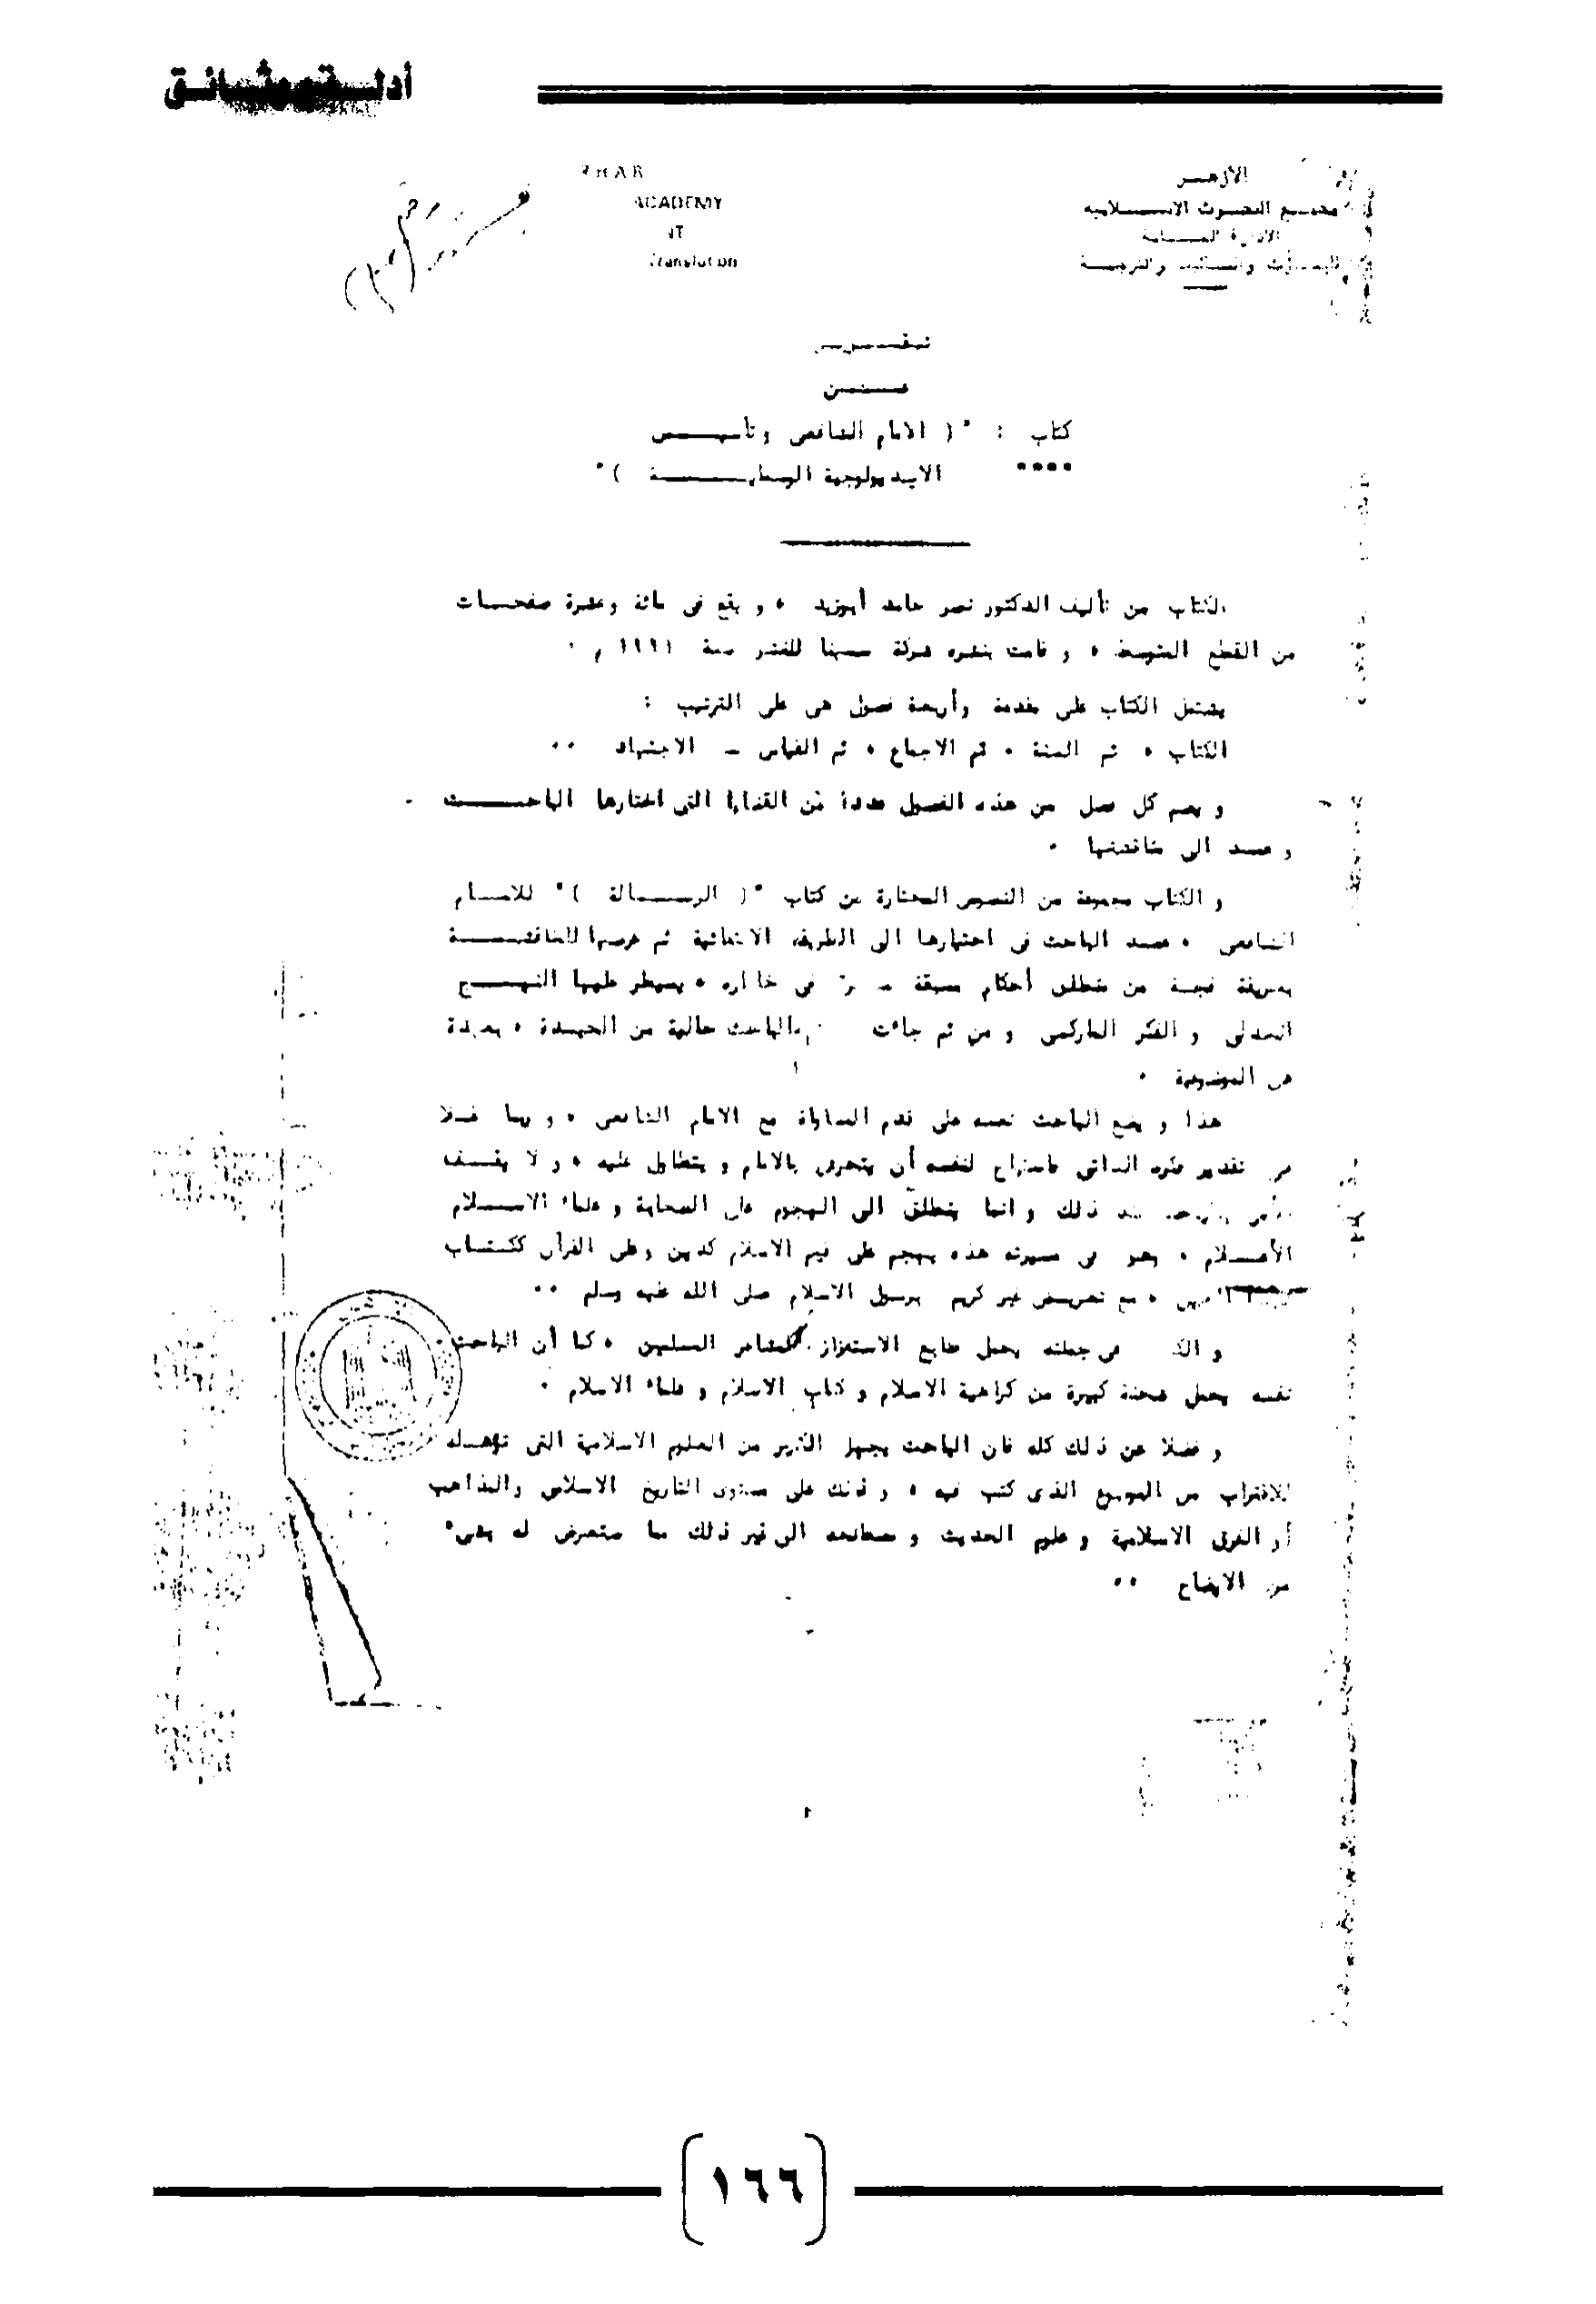 أدلة ووثائق
الأزهر
مجمع البحوث الاسلامية
الادارة العامة
للبحوث والتأليف والترجمة
ACADEMY
Translation
تقرير
عن
كتاب : "( الامام الشافعى وتأسيس
الايديولوجية الوسطية )"
الكتاب من تأليف الدكتور نصر حامد أبوزيد ، و يقع فى مائة وعشرة صفحات
من القطع المتوسط ، و قامت بنشره شركة سينا للنشر سنة ١٩٩٢ م .
يشتمل الكتاب على مقدمة وأربعة فصول هى على الترتيب :
الكتاب ، ثم السنة ، ثم الاجماع ، ثم القياس - الاجتهاد ..
و يضم كل فصل من هذه الفصول عددا من القضايا التى اختارها الباحث
و عمد الى مناقشتها .
و الكتاب مجموعة من النصوص المختارة من كتاب "( الرسالة )" للامام
الشافعى ، عمد الباحث فى اختيارها الى الطريقة الانتقائية ثم عرضها للمناقشة
بطريقة فجة من منطلق أحكام مسبقة فى ، يسيطر عليها النهج
الجدلى و الفكر الماركسى و من ثم جاءت الباحث خالية من الحيدة ، بعيدة
عن الموضوعية .
هذا و يضع الباحث نفسه على قدم المساواة مع الامام الشافعى ، و ربما فضلا
من تقدير فكره الذاتى فاستباح لنفسه أن يتحرى بالامام و يتطاول عليه ، و لا يقف
عند ذلك و انما ينطلق الى الهجوم على الصحابة و علماء الاسلام
الأعلام ، وهو فى مسيرته هذه يهجم على قيم الاسلام كدين وعلى القرآن ككتاب
، مع تعريض غير كريم برسول الاسلام صلى الله عليه وسلم ..
و فى جملته يحمل طابع الاستفزاز لمشاعر المسلمين ، كما أن الباحث
نفسه يحمل شحنة كبيرة من كراهية الاسلام و كتاب الاسلام و علماء الاسلام .
و فضلا عن ذلك كله فان الباحث يجهل الكثير من العلوم الاسلامية التى تؤهله
للاقتراب من الموضوع الذى كتب فيه ، و ذلك على مستوى التاريخ الاسلامى والمذاهب
أو الفرق الاسلامية و علوم الحديث و مصطلحه الى غير ذلك مما سنعرض له بشىء
من الايضاح ..
(١٦٦)